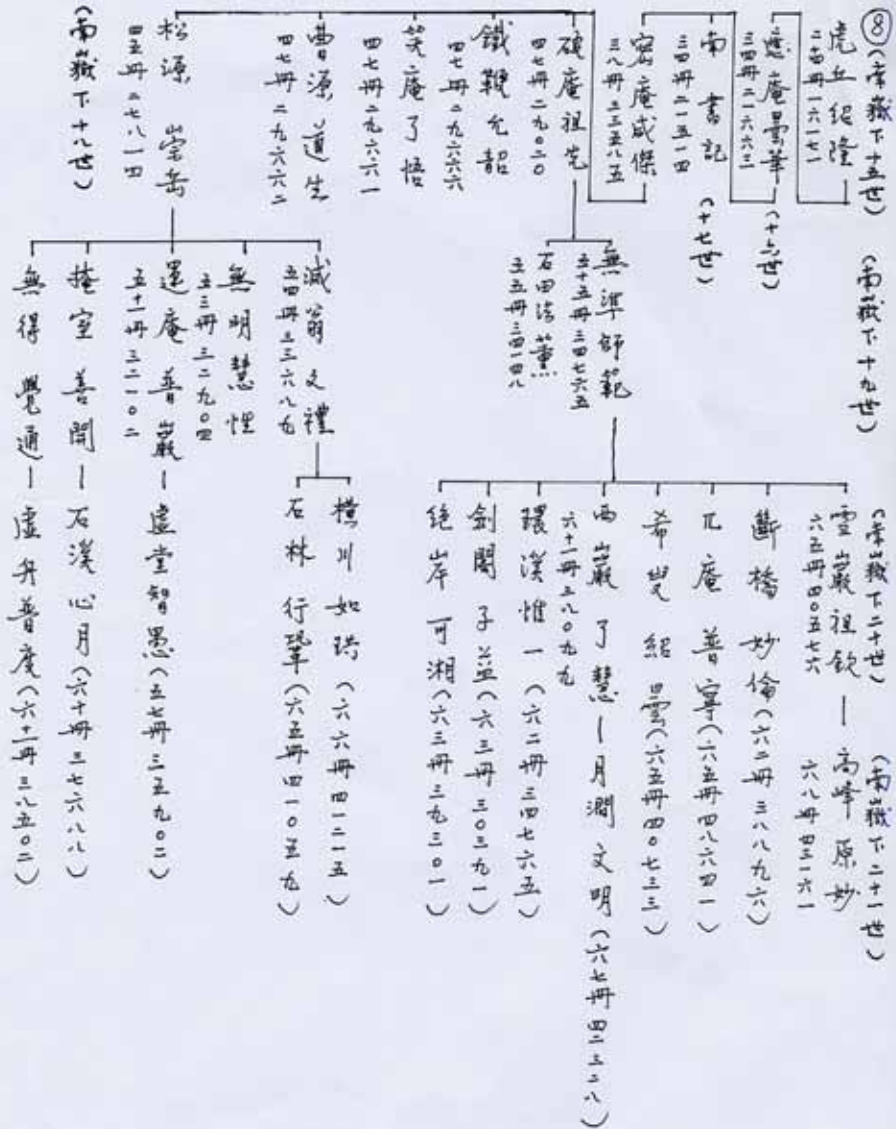 ⑧(南嶽下十五世)
(南嶽下十九世)
(南嶽下二十世)
(南嶽下二十一世)
虎丘紹隆
二四冊一六一七一
應庵曇華
二四冊二一六六三
(十六世)
南書記
二四冊二一五一四
(十七世)
密庵咸傑
三八冊二三五八五
破庵祖先
四七冊二九〇二〇
鐵鞭允韶
四七冊二九六六六
笑庵了悟
四七冊二九六六一
曹源道生
四七冊二九六六二
松源崇岳
四五冊二七八一四
(南嶽下十八世)
無準師範
五十五冊三四七六五
石田法薰
五五冊三四一四八
雪巖祖欽—高峰原妙
六五冊四〇五七六
六八冊四三一六一
斷橋妙倫(六二冊三八八九六)
兀庵普寧(六五冊四八六四一)
希叟紹曇(六五冊四〇七三三)
西巖了慧—月澗文明(六七冊四二三二八)
六十一冊三八〇九九
環溪惟一(六二冊三四七六五)
劍關子益(六三冊三〇三九一)
絕岸可湘(六三冊三九三〇一)
滅翁文禮
五四冊三三六八九
橫川如珙(六六冊四一二一五)
石林行鞏(六五冊四一〇五九)
無明慧性
五三冊三二九〇四
運庵普巖—虛堂智愚(五七冊三五九〇二)
五十一冊三二一〇二
掩室善開—石溪心月(六十冊三七六八八)
無得覺通—虛舟普度(六十一冊三八五〇二)